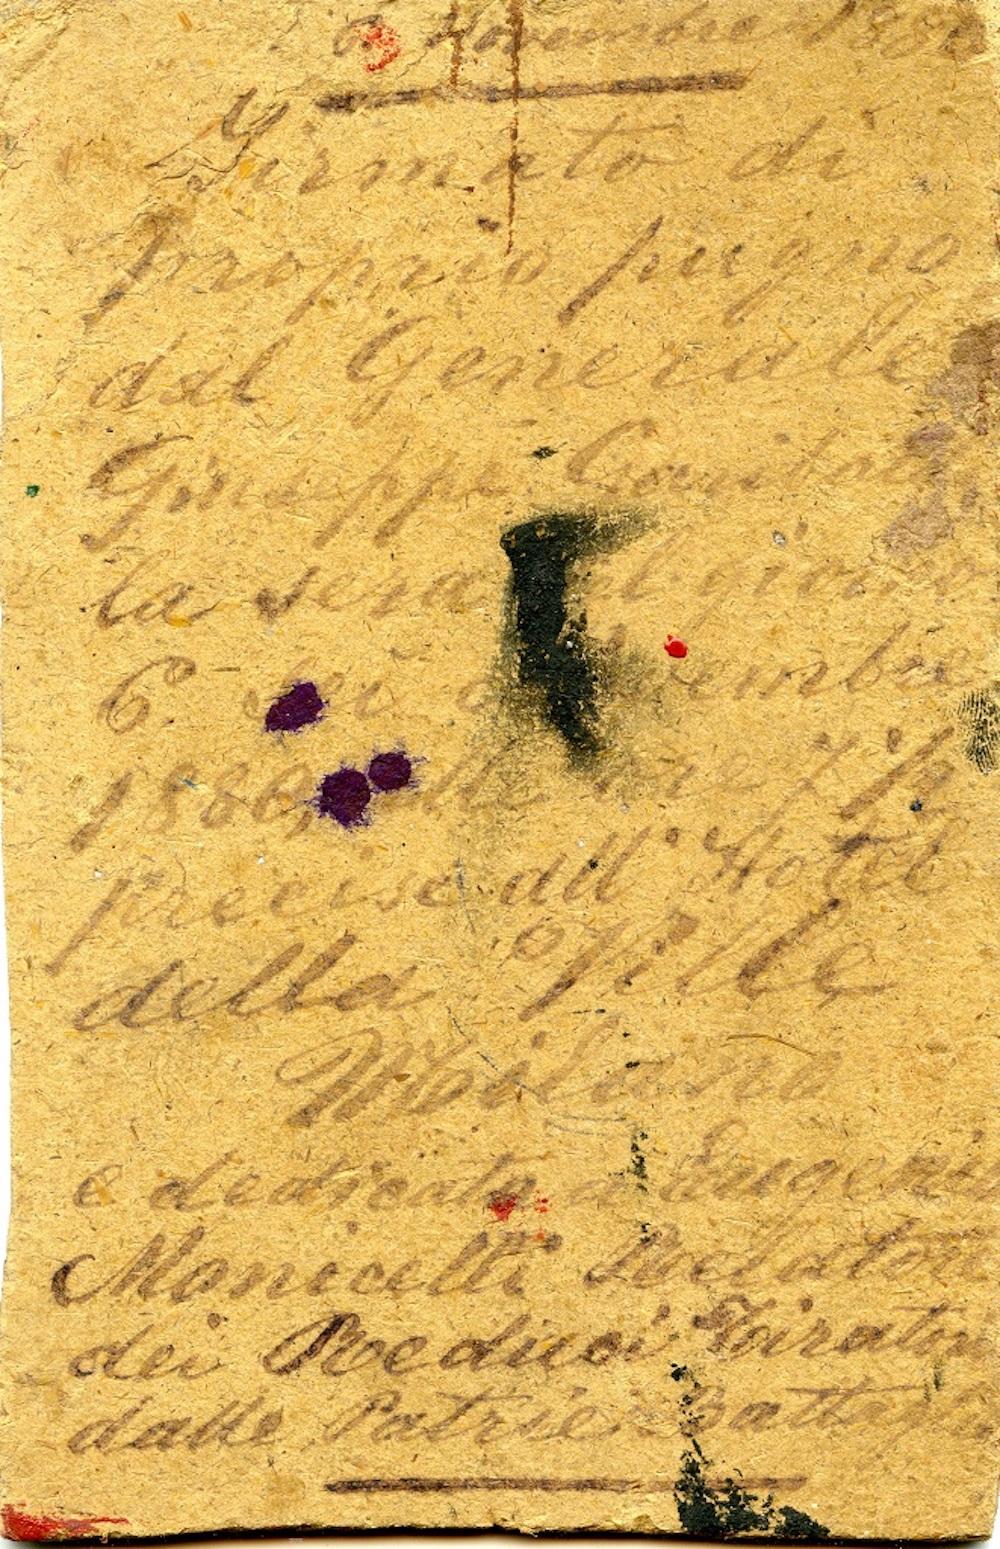 Novembre 188
Firmato di
proprio pugno
dal Generale
Giuseppe
la sera del giorno
6. di
1880, alle ore 7 ½
precise all' Hotel
della Ville
Milano
e dedicato a Eugenio
Monicelli Relatore
dei Reduci
dalle Patrie Battaglie